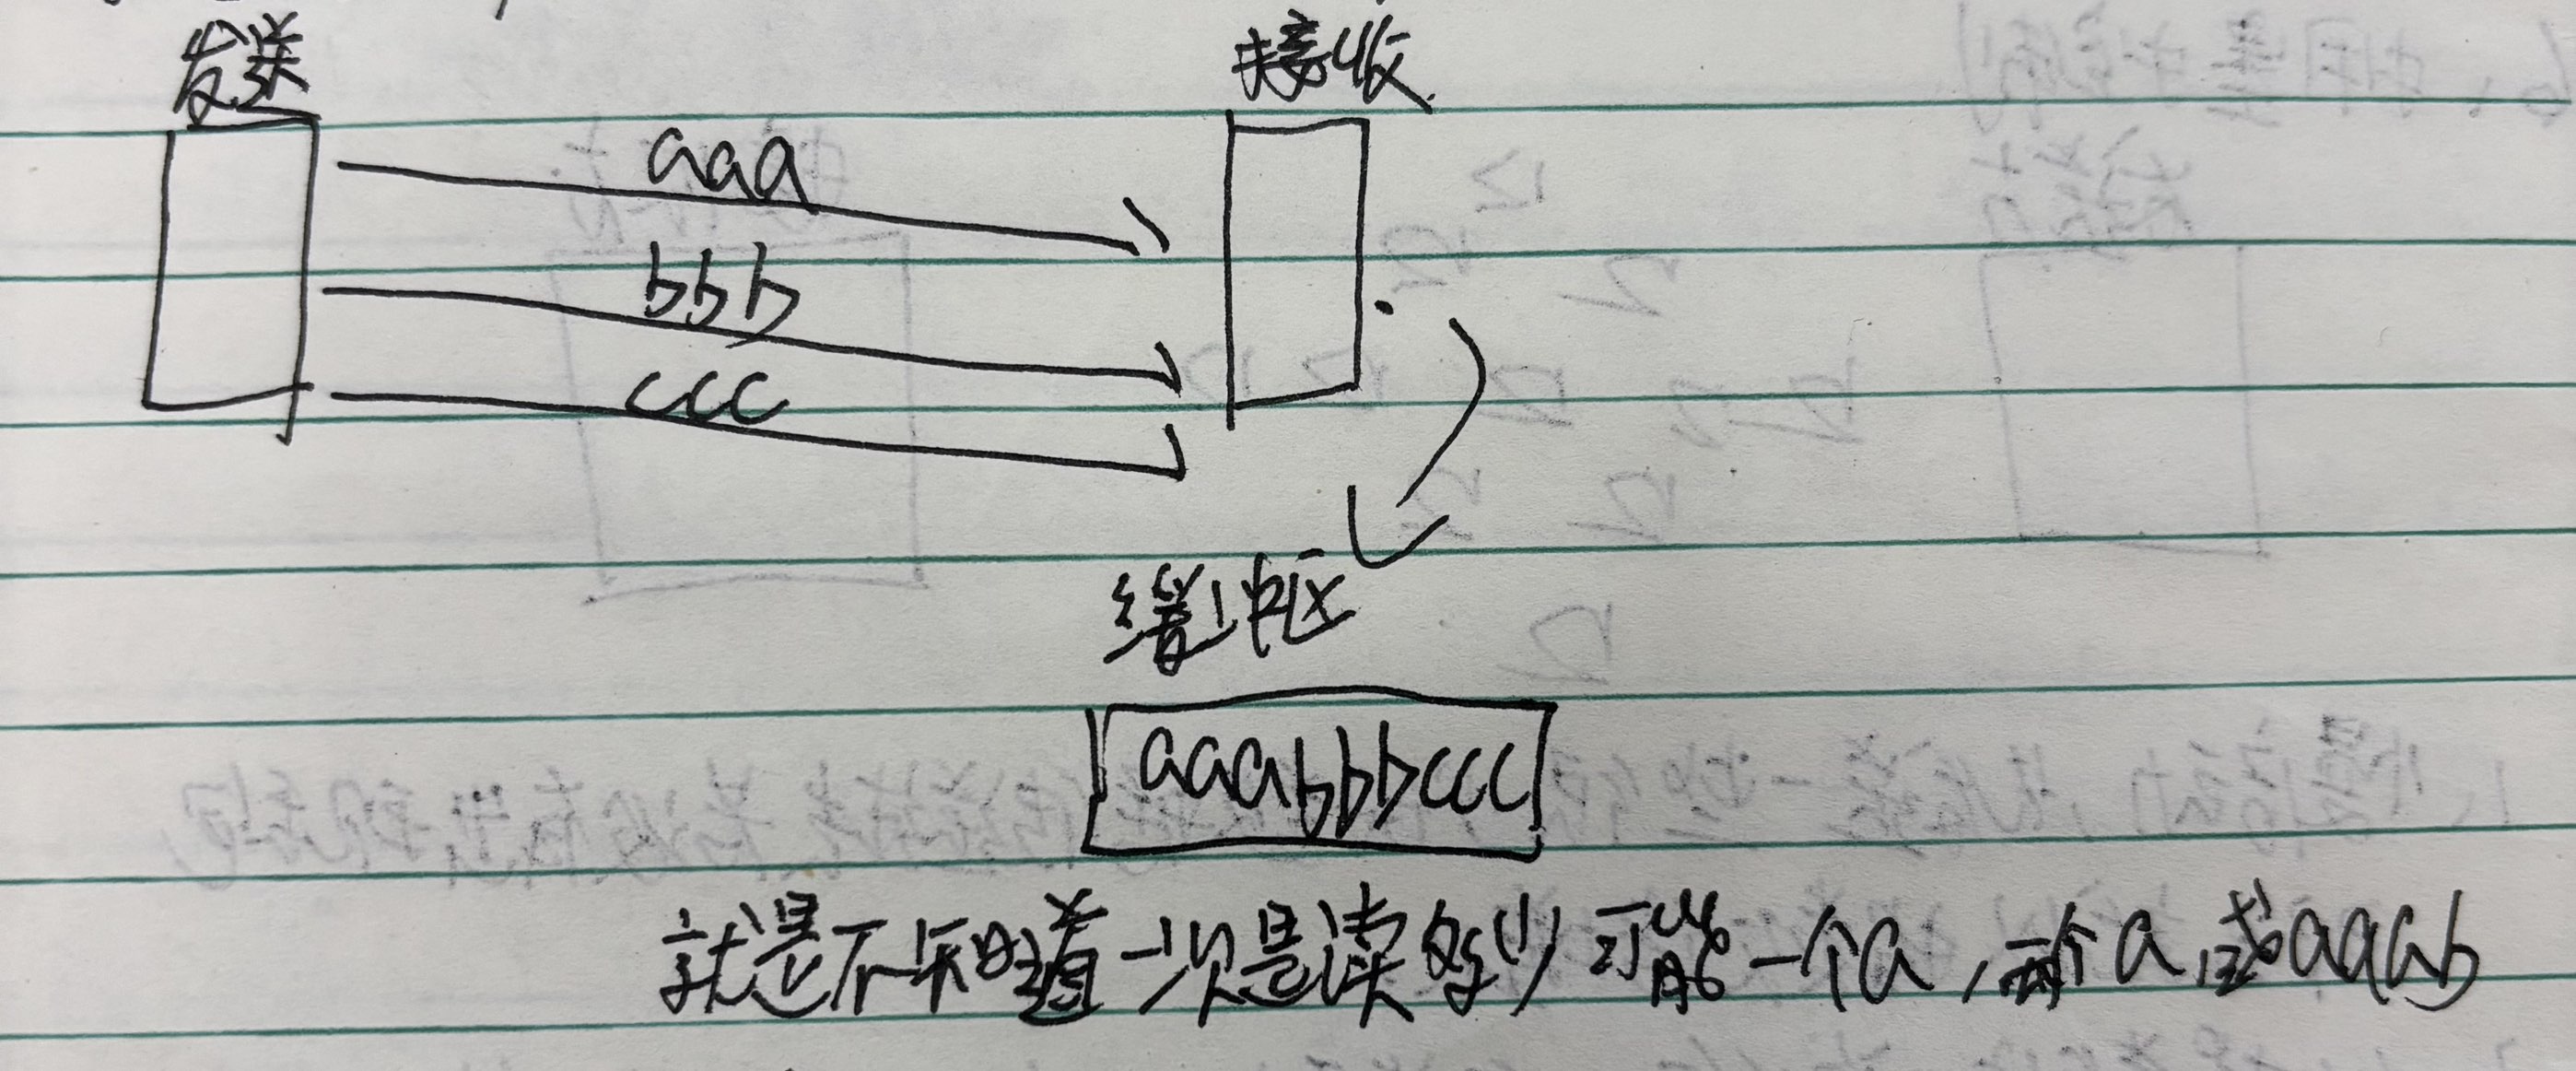 发送
接收
aaa
bbb
ccc
缓冲区
aaabbbccc
就是不知道一次是读多少可能一个a,两个a,或aaab